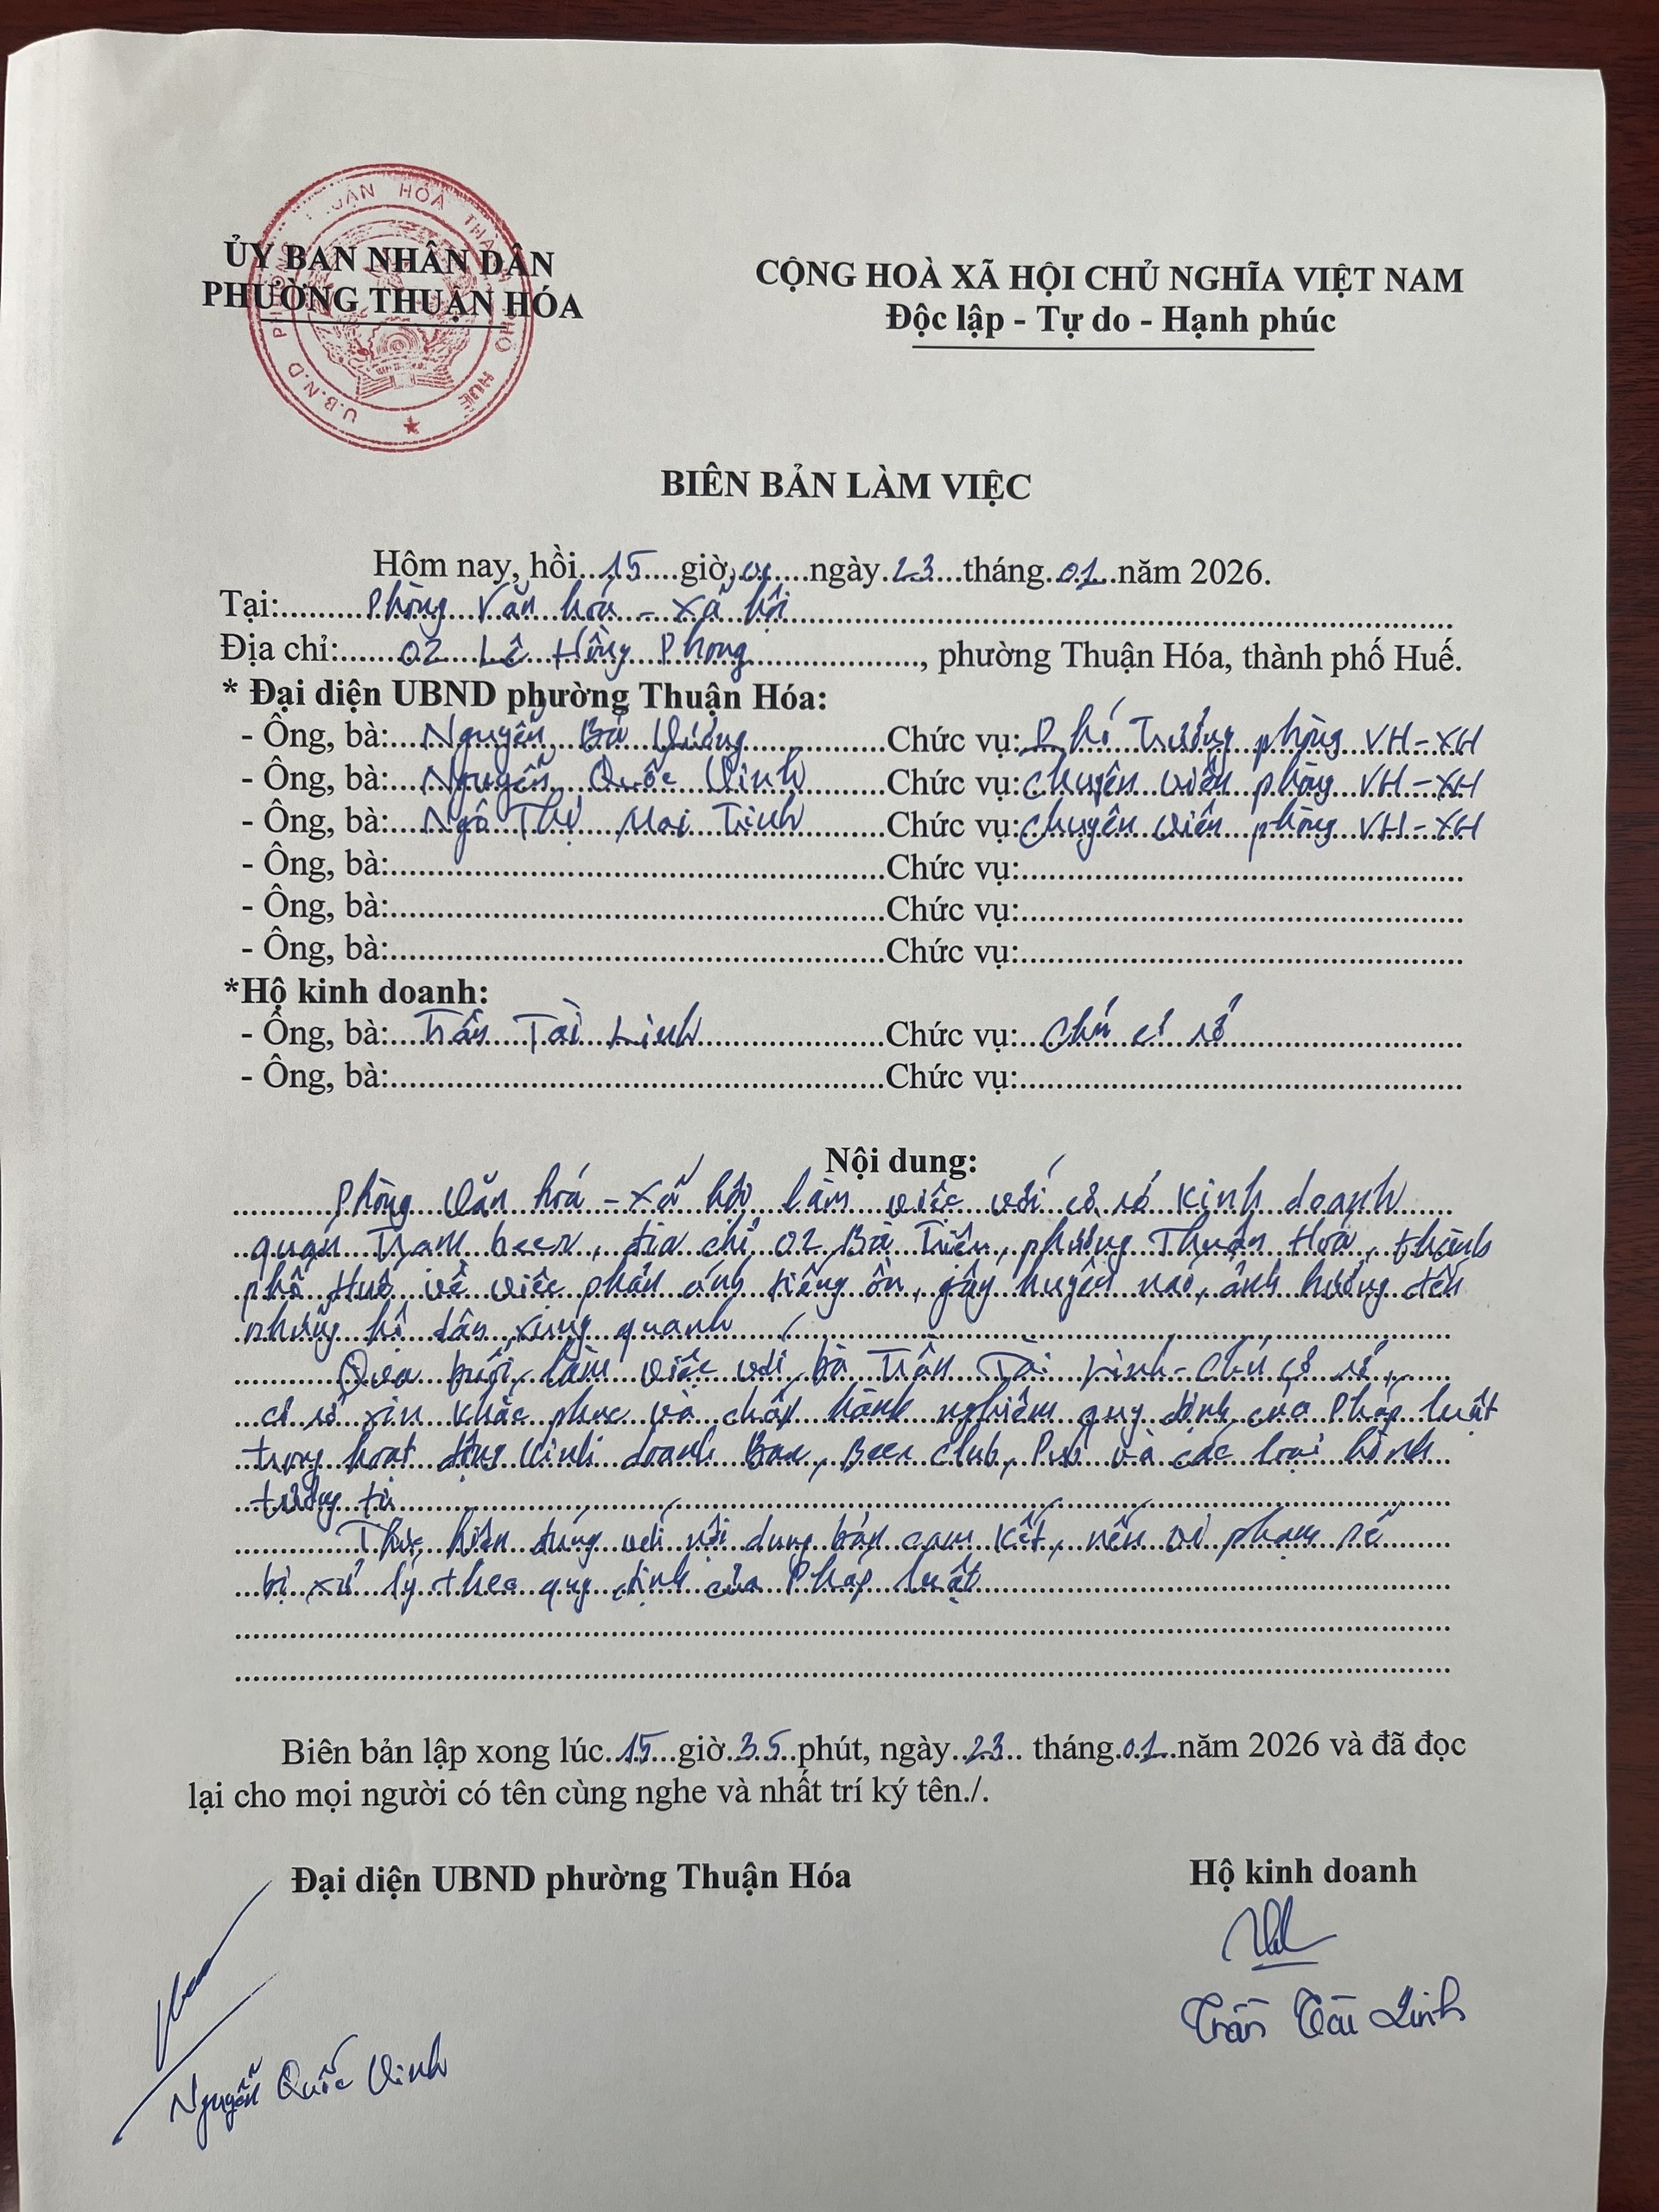 ỦY BAN NHÂN DÂN
PHƯỜNG THUẬN HÓA
U.B.N.D PHƯỜNG THUẬN HÓA THÀNH PHỐ HUẾ
CỘNG HOÀ XÃ HỘI CHỦ NGHĨA VIỆT NAM
Độc lập - Tự do - Hạnh phúc
BIÊN BẢN LÀM VIỆC
Hôm nay, hồi...15....giờ,.........ngày.23...tháng.01..năm 2026.
Tại:.........Phòng Văn hoá - Xã hội
Địa chỉ:......02 Lê Hồng Phong..................., phường Thuận Hóa, thành phố Huế.
* Đại diện UBND phường Thuận Hóa:
- Ông, bà:...Nguyễn Bá Vương...............Chức vụ:Phó Trưởng phòng VH-XH
- Ông, bà:...Nguyễn Quốc Vinh.........Chức vụ:Chuyên viên phòng VH-XH
- Ông, bà:...Ngô Thị Mai Trinh.........Chức vụ:Chuyên viên phòng VH-XH
- Ông, bà:....................................................Chức vụ:..............................................
- Ông, bà:....................................................Chức vụ:..............................................
- Ông, bà:....................................................Chức vụ:..............................................
*Hộ kinh doanh:
- Ông, bà:...Trần Tài Linh...................Chức vụ:...Chủ cơ sở.........................
- Ông, bà:....................................................Chức vụ:..............................................
Nội dung:
Phòng Văn hoá - Xã hội làm việc với cơ sở kinh doanh
quán Trạm beer, địa chỉ 02 Bà Triệu, phường Thuận Hoá, thành
phố Huế về việc phản ánh tiếng ồn, gây huyên náo, ảnh hưởng đến
những hộ dân xung quanh
Qua buổi làm việc với bà Trần Tài Linh - Chủ cơ sở,
cơ sở xin khắc phục và chấp hành nghiêm quy định của Pháp luật
trong hoạt động kinh doanh Bar, Beer club, Pub và các loại hình
tương tự
Thực hiện đúng với nội dung bản cam kết, nếu vi phạm sẽ
bị xử lý theo quy định của Pháp luật
Biên bản lập xong lúc..15...giờ.35..phút, ngày..23.. tháng.01..năm 2026 và đã đọc
lại cho mọi người có tên cùng nghe và nhất trí ký tên./.
Đại diện UBND phường Thuận Hóa
Hộ kinh doanh
Trần Tài Linh
Nguyễn Quốc Vinh